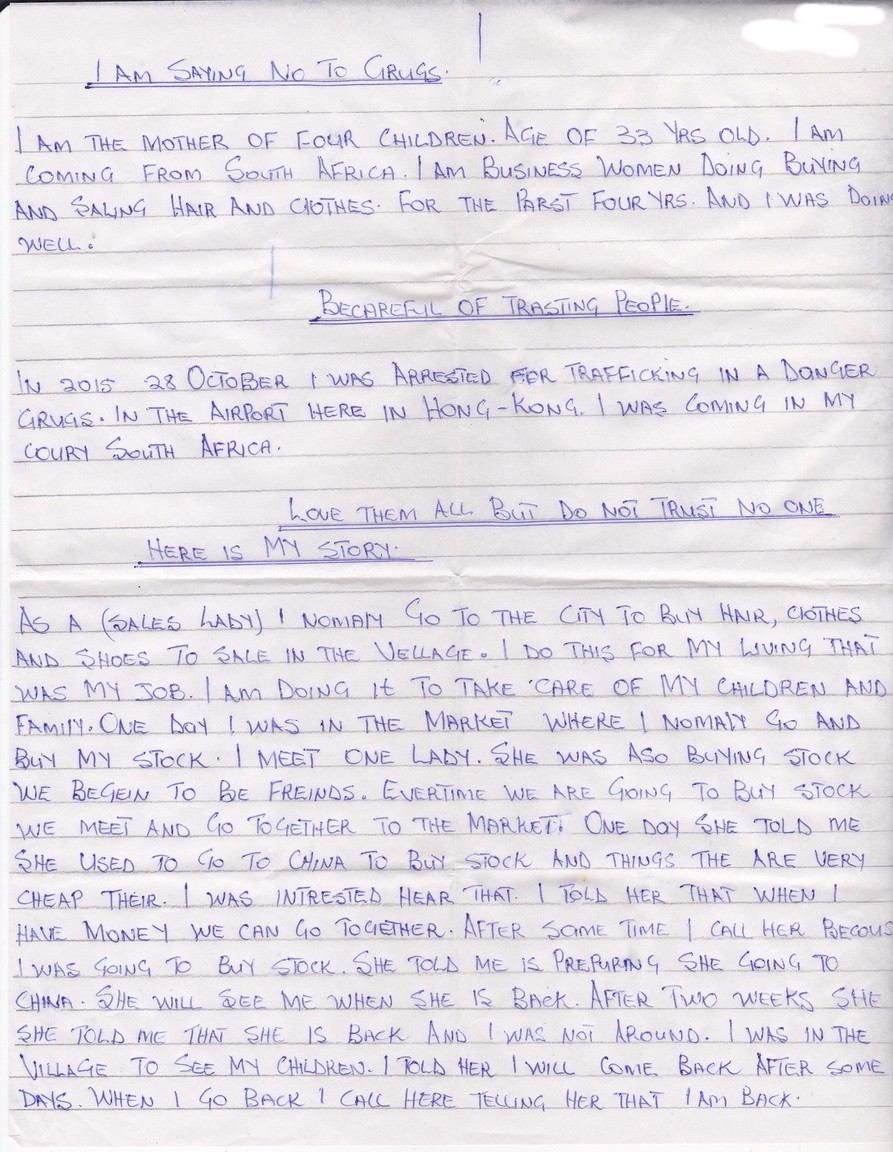 I AM SAYING NO TO GRUGS.
I AM THE MOTHER OF FOUR CHILDREN. AGE OF 33 YRS OLD. I AM
COMING FROM SOUTH AFRICA. I AM BUSINESS WOMEN DOING BUYING
AND SALING HAIR AND CLOTHES. FOR THE PARST FOUR YRS. AND I WAS DOING
WELL.
BECAREFUL OF TRASTING PEOPLE.
IN 2015 28 OCTOBER I WAS ARRESTED FOR TRAFFICKING IN A DANGER
GRUGS. IN THE AIRPORT HERE IN HONG-KONG. I WAS COMING IN MY
COURY SOUTH AFRICA.
LOVE THEM ALL BUT DO NOT TRUST NO ONE
HERE IS MY STORY.
AS A (SALES LADY) I NOMALY GO TO THE CITY TO BUY HAIR, CLOTHES
AND SHOES TO SALE IN THE VELLAGE. I DO THIS FOR MY LIVING THAT
WAS MY JOB. I AM DOING IT TO TAKE CARE OF MY CHILDREN AND
FAMILY. ONE DAY I WAS IN THE MARKET WHERE I NOMALY GO AND
BUY MY STOCK. I MEET ONE LADY. SHE WAS ASO BUYING STOCK
WE BEGEIN TO BE FREINDS. EVERTIME WE ARE GOING TO BUY STOCK
WE MEET AND GO TOGETHER TO THE MARKET. ONE DAY SHE TOLD ME
SHE USED TO GO TO CHINA TO BUY STOCK AND THINGS THE ARE VERY
CHEAP THEIR. I WAS INTRESTED HEAR THAT. I TOLD HER THAT WHEN I
HAVE MONEY WE CAN GO TOGETHER. AFTER SOME TIME I CALL HER BECOUS
I WAS GOING TO BUY STOCK. SHE TOLD ME IS PREPURING SHE GOING TO
CHINA. SHE WILL SEE ME WHEN SHE IS BACK. AFTER TWO WEEKS SHE
SHE TOLD ME THAT SHE IS BACK AND I WAS NOT AROUND. I WAS IN THE
VILLAGE TO SEE MY CHILDREN. I TOLD HER I WILL COME BACK AFTER SOME
DAYS. WHEN I GO BACK I CALL HERE TELLING HER THAT I AM BACK.